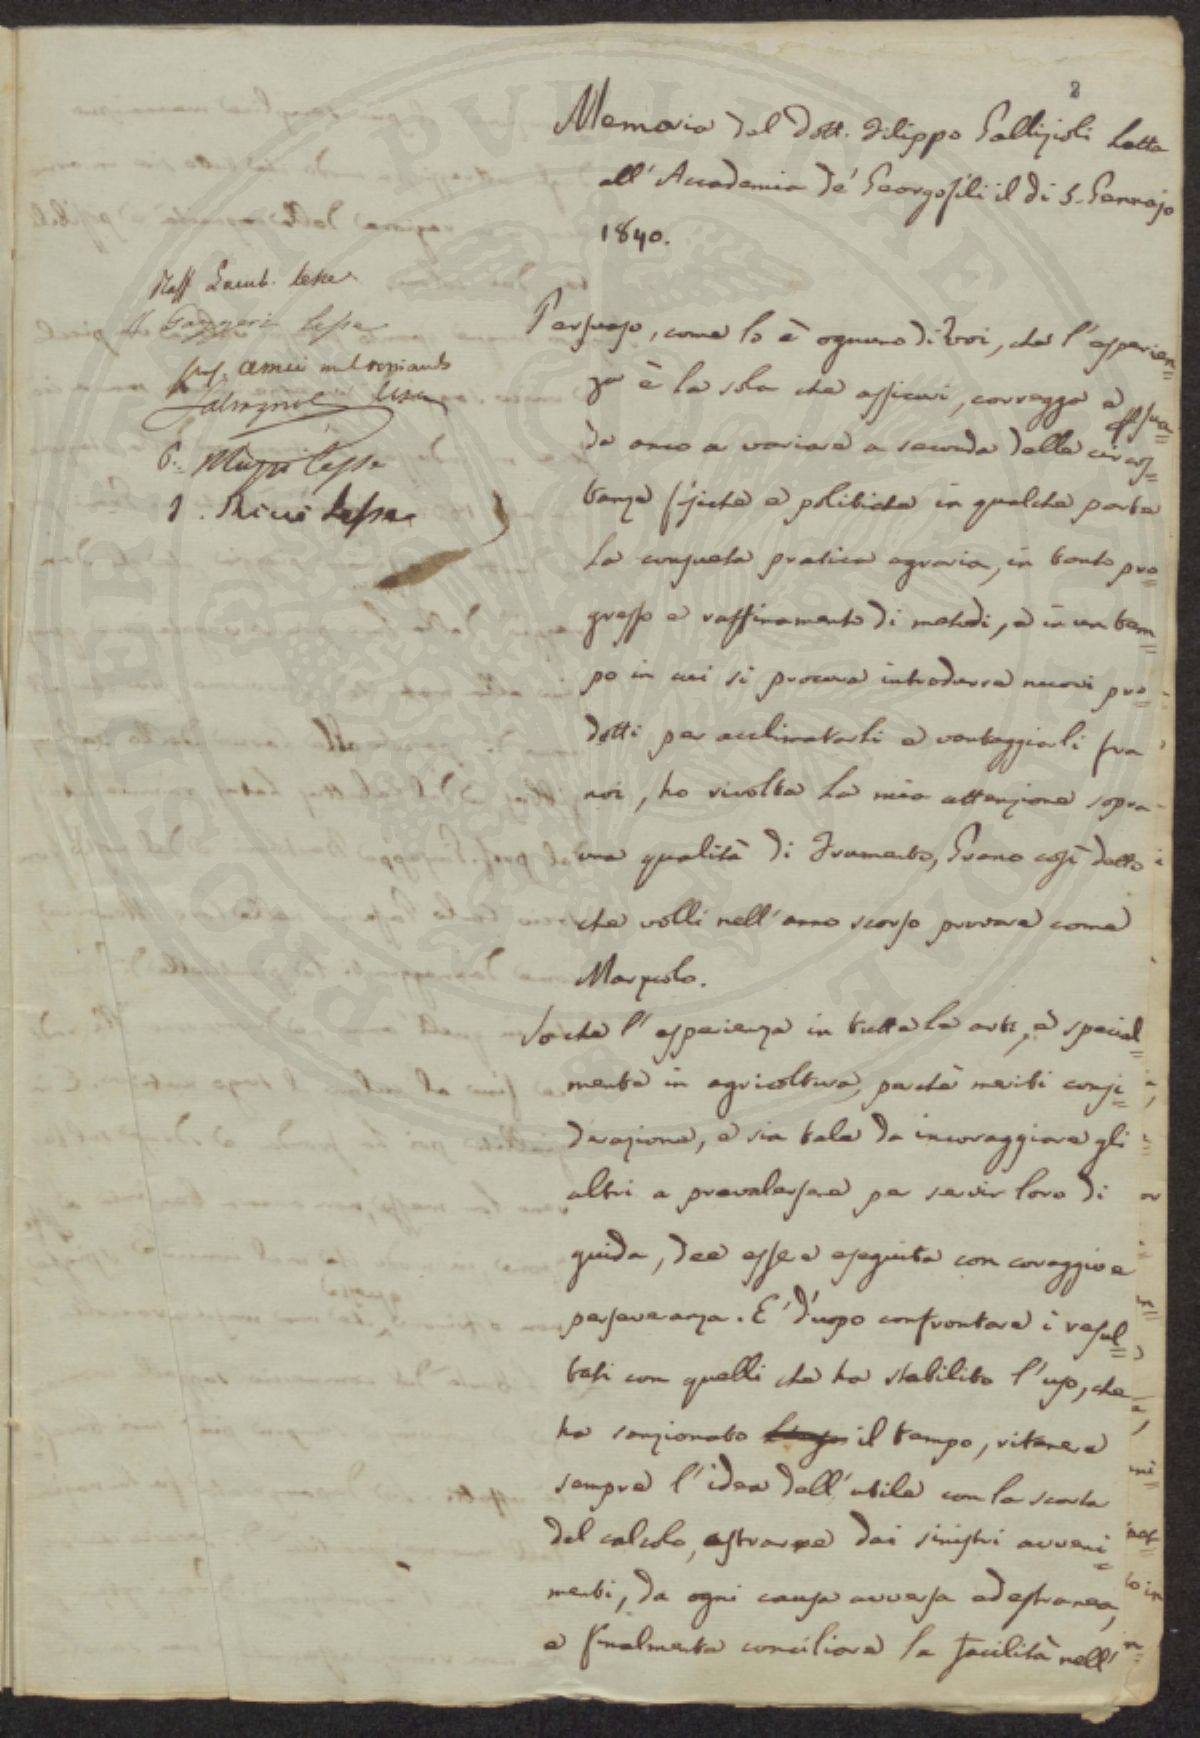 8
Memoria del Dott. Filippo Gallizioli Letta
all' Accademia de' Georgofili il di 5. Gennajo
1840.
Raff Lamb. lesse
Gazzeri lesse
lesse
lesse
J. Ricci lesse
Persuaso, come lo è ognuno di Voi, che l'esperien=
za è la sola che assicuri, corregga e persua=
da anco a variare a seconda delle circos=
tanze fisiche e politiche in qualche parte
la consueta pratica agraria, in tanto pro=
gresso e raffinamento di metodi, e in un tem=
po in cui si procura introdurre nuovi pro=
dotti per acclimatarli e vantaggiarli fra
noi, ho rivolta la mia attenzione sopra
una qualità di Frumento, Grano così detto
che volli nell'anno scorso provare come
Marzolo.
So che l'esperienza in tutte le arti, e special=
mente in agricoltura, perchè meriti consi=
derazione, e sia tale da incoraggiare gli
altri a prevalersene per servir loro di
guida, dee essere eseguita con coraggio e
perseveranza. E' d'uopo confrontare i resul=
tati con quelli che ha stabilito l'uso, che
ha sanzionato il tempo, ritenere
sempre l'idea dell'utile con la scorta
del calcolo, astrarre dai sinistri avveni=
menti, da ogni causa avversa ed estranea,
e finalmente conciliare la facilità nell'